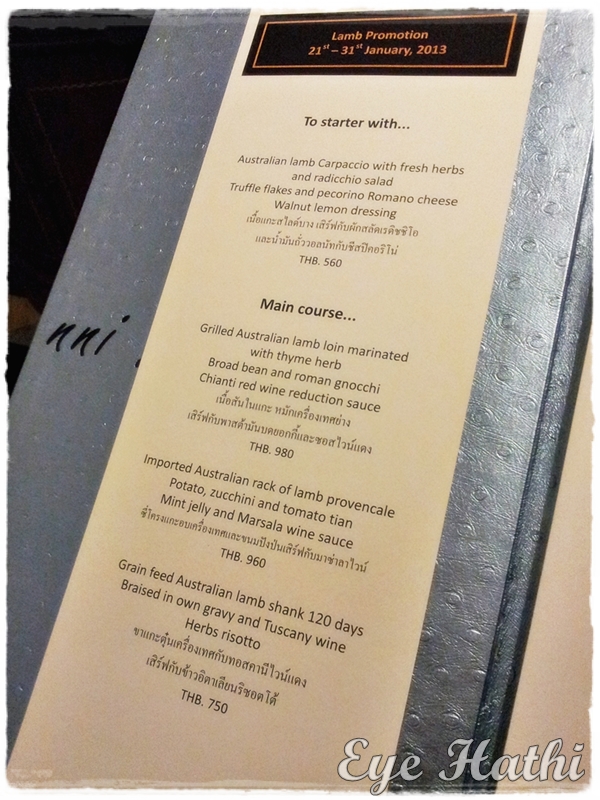 Lamb Promotion
21st – 31st January, 2013
To starter with...
Australian lamb Carpaccio with fresh herbs
and radicchio salad
Truffle flakes and pecorino Romano cheese
Walnut lemon dressing
เนื้อแกะสไลด์บาง เสิร์ฟกับผักสลัดเรดิชชิโอ
และน้ำมันถั่ววอลนัทกับชีสปิคอริโน่
THB. 560
Main course...
Grilled Australian lamb loin marinated
with thyme herb
Broad bean and roman gnocchi
Chianti red wine reduction sauce
เนื้อสันในแกะ หมักเครื่องเทศย่าง
เสิร์ฟกับพาสต้ามันบดยอกกี้และซอสไวน์แดง
THB. 980
Imported Australian rack of lamb provencale
Potato, zucchini and tomato tian
Mint jelly and Marsala wine sauce
ซี่โครงแกะอบเครื่องเทศและขนมปังป่นเสิร์ฟกับมาซ่าลาไวน์
THB. 960
Grain feed Australian lamb shank 120 days
Braised in own gravy and Tuscany wine
Herbs risotto
ขาแกะตุ๋นเครื่องเทศกับทอสคานีไวน์แดง
เสิร์ฟกับข้าวอิตาเลียนริซอตโต้
THB. 750
nni
Eye Hathi